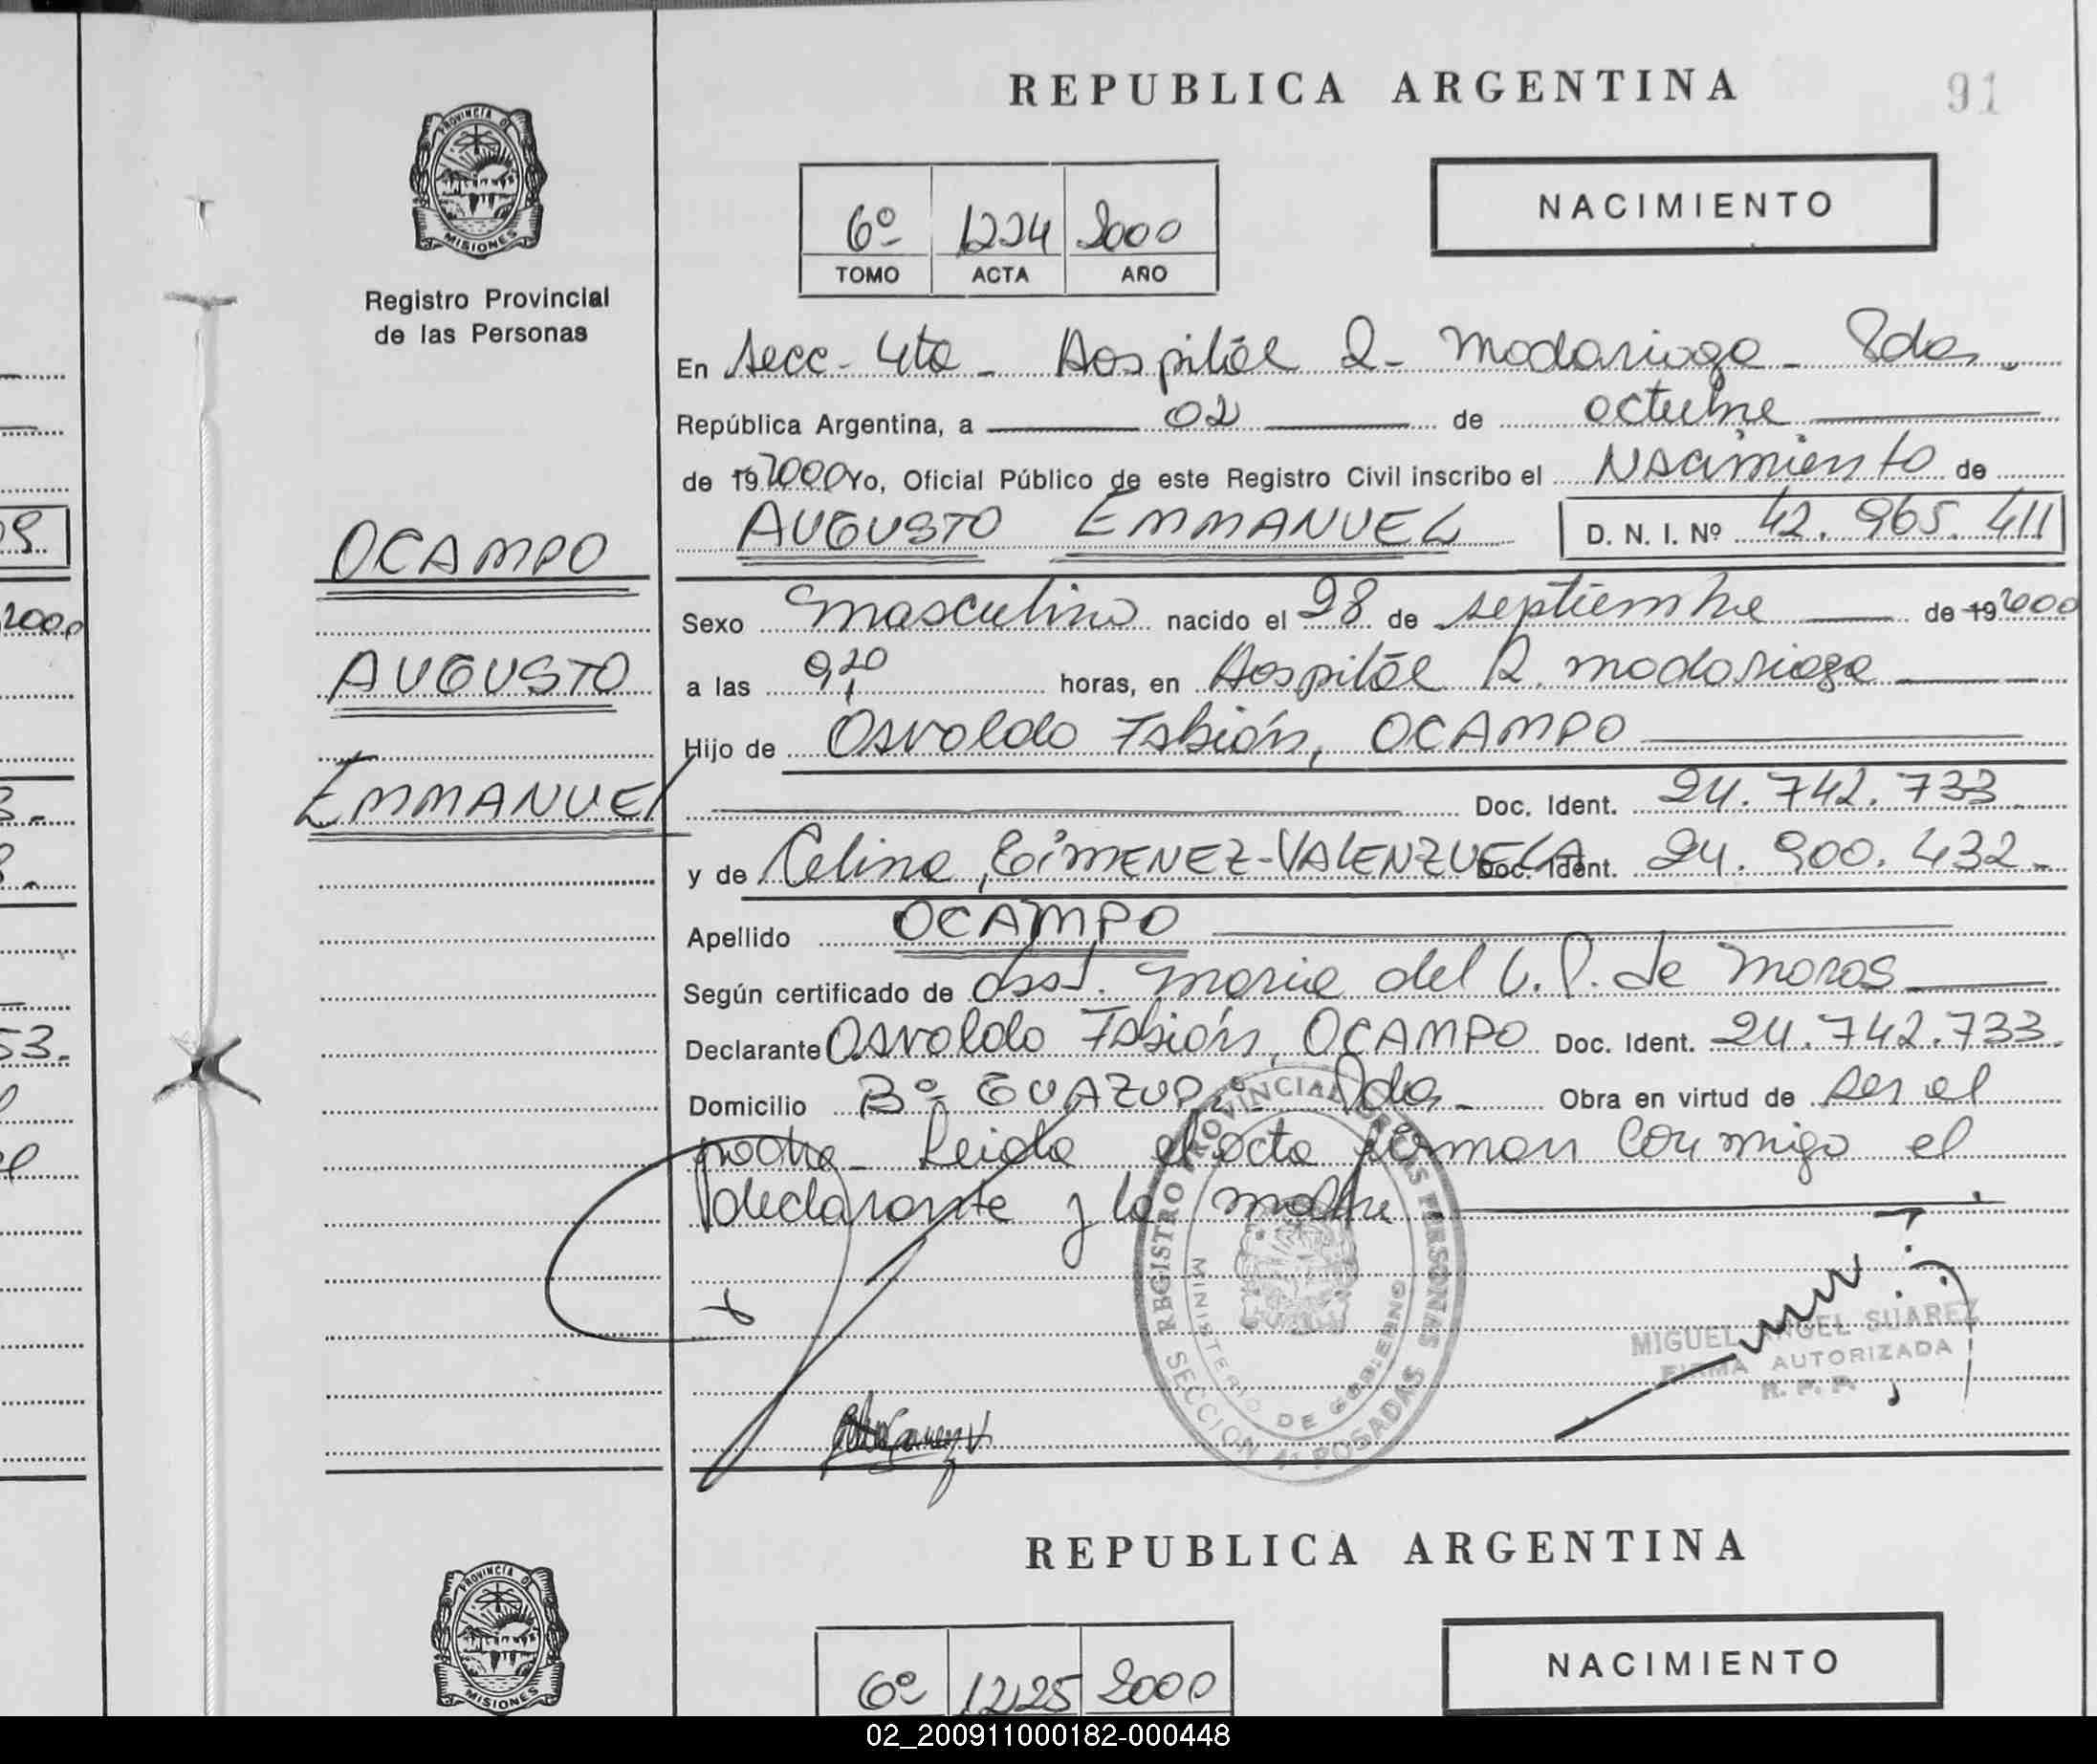 REPUBLICA ARGENTINA
91
PROVINCIA DE
MISIONES
Registro Provincial
de las Personas
6º 1224 2000
TOMO ACTA AÑO
NACIMIENTO
En Secc- 4ta - Hospital R- Madariaga - Pdas.
República Argentina, a 02 de octubre
de 19 2000 Yo, Oficial Público de este Registro Civil inscribo el Nacimiento de
AUGUSTO EMMANUEL D. N. I. Nº 42.965.411
OCAMPO
AUGUSTO
EMMANUEL
Sexo masculino nacido el 28 de septiembre de 19 2000
a las 9,20 horas, en Hospital R. Madariaga
Hijo de Osvaldo Fabián, OCAMPO
Doc. Ident. 24.742.733
y de Celina, GIMENEZ-VALENZUELA Doc. Ident. 24.900.432-
Apellido OCAMPO
Según certificado de Obst. Maria del C. P. de Moras
Declarante Osvaldo Fabián, OCAMPO Doc. Ident. 24.742.733.
Domicilio Bº GUAZUPI- Pdas- Obra en virtud de ser el
padre- Leida el acta firman conmigo el
declarante y la madre.
REGISTRO PROVINCIAL DE LAS PERSONAS
MINISTERIO DE GOBIERNO
SECCION 4ª POSADAS
MIGUEL ANGEL SUAREZ
FIRMA AUTORIZADA
R. P. P.
REPUBLICA ARGENTINA
PROVINCIA DE
MISIONES
6º 1225 2000
NACIMIENTO
02_200911000182-000448